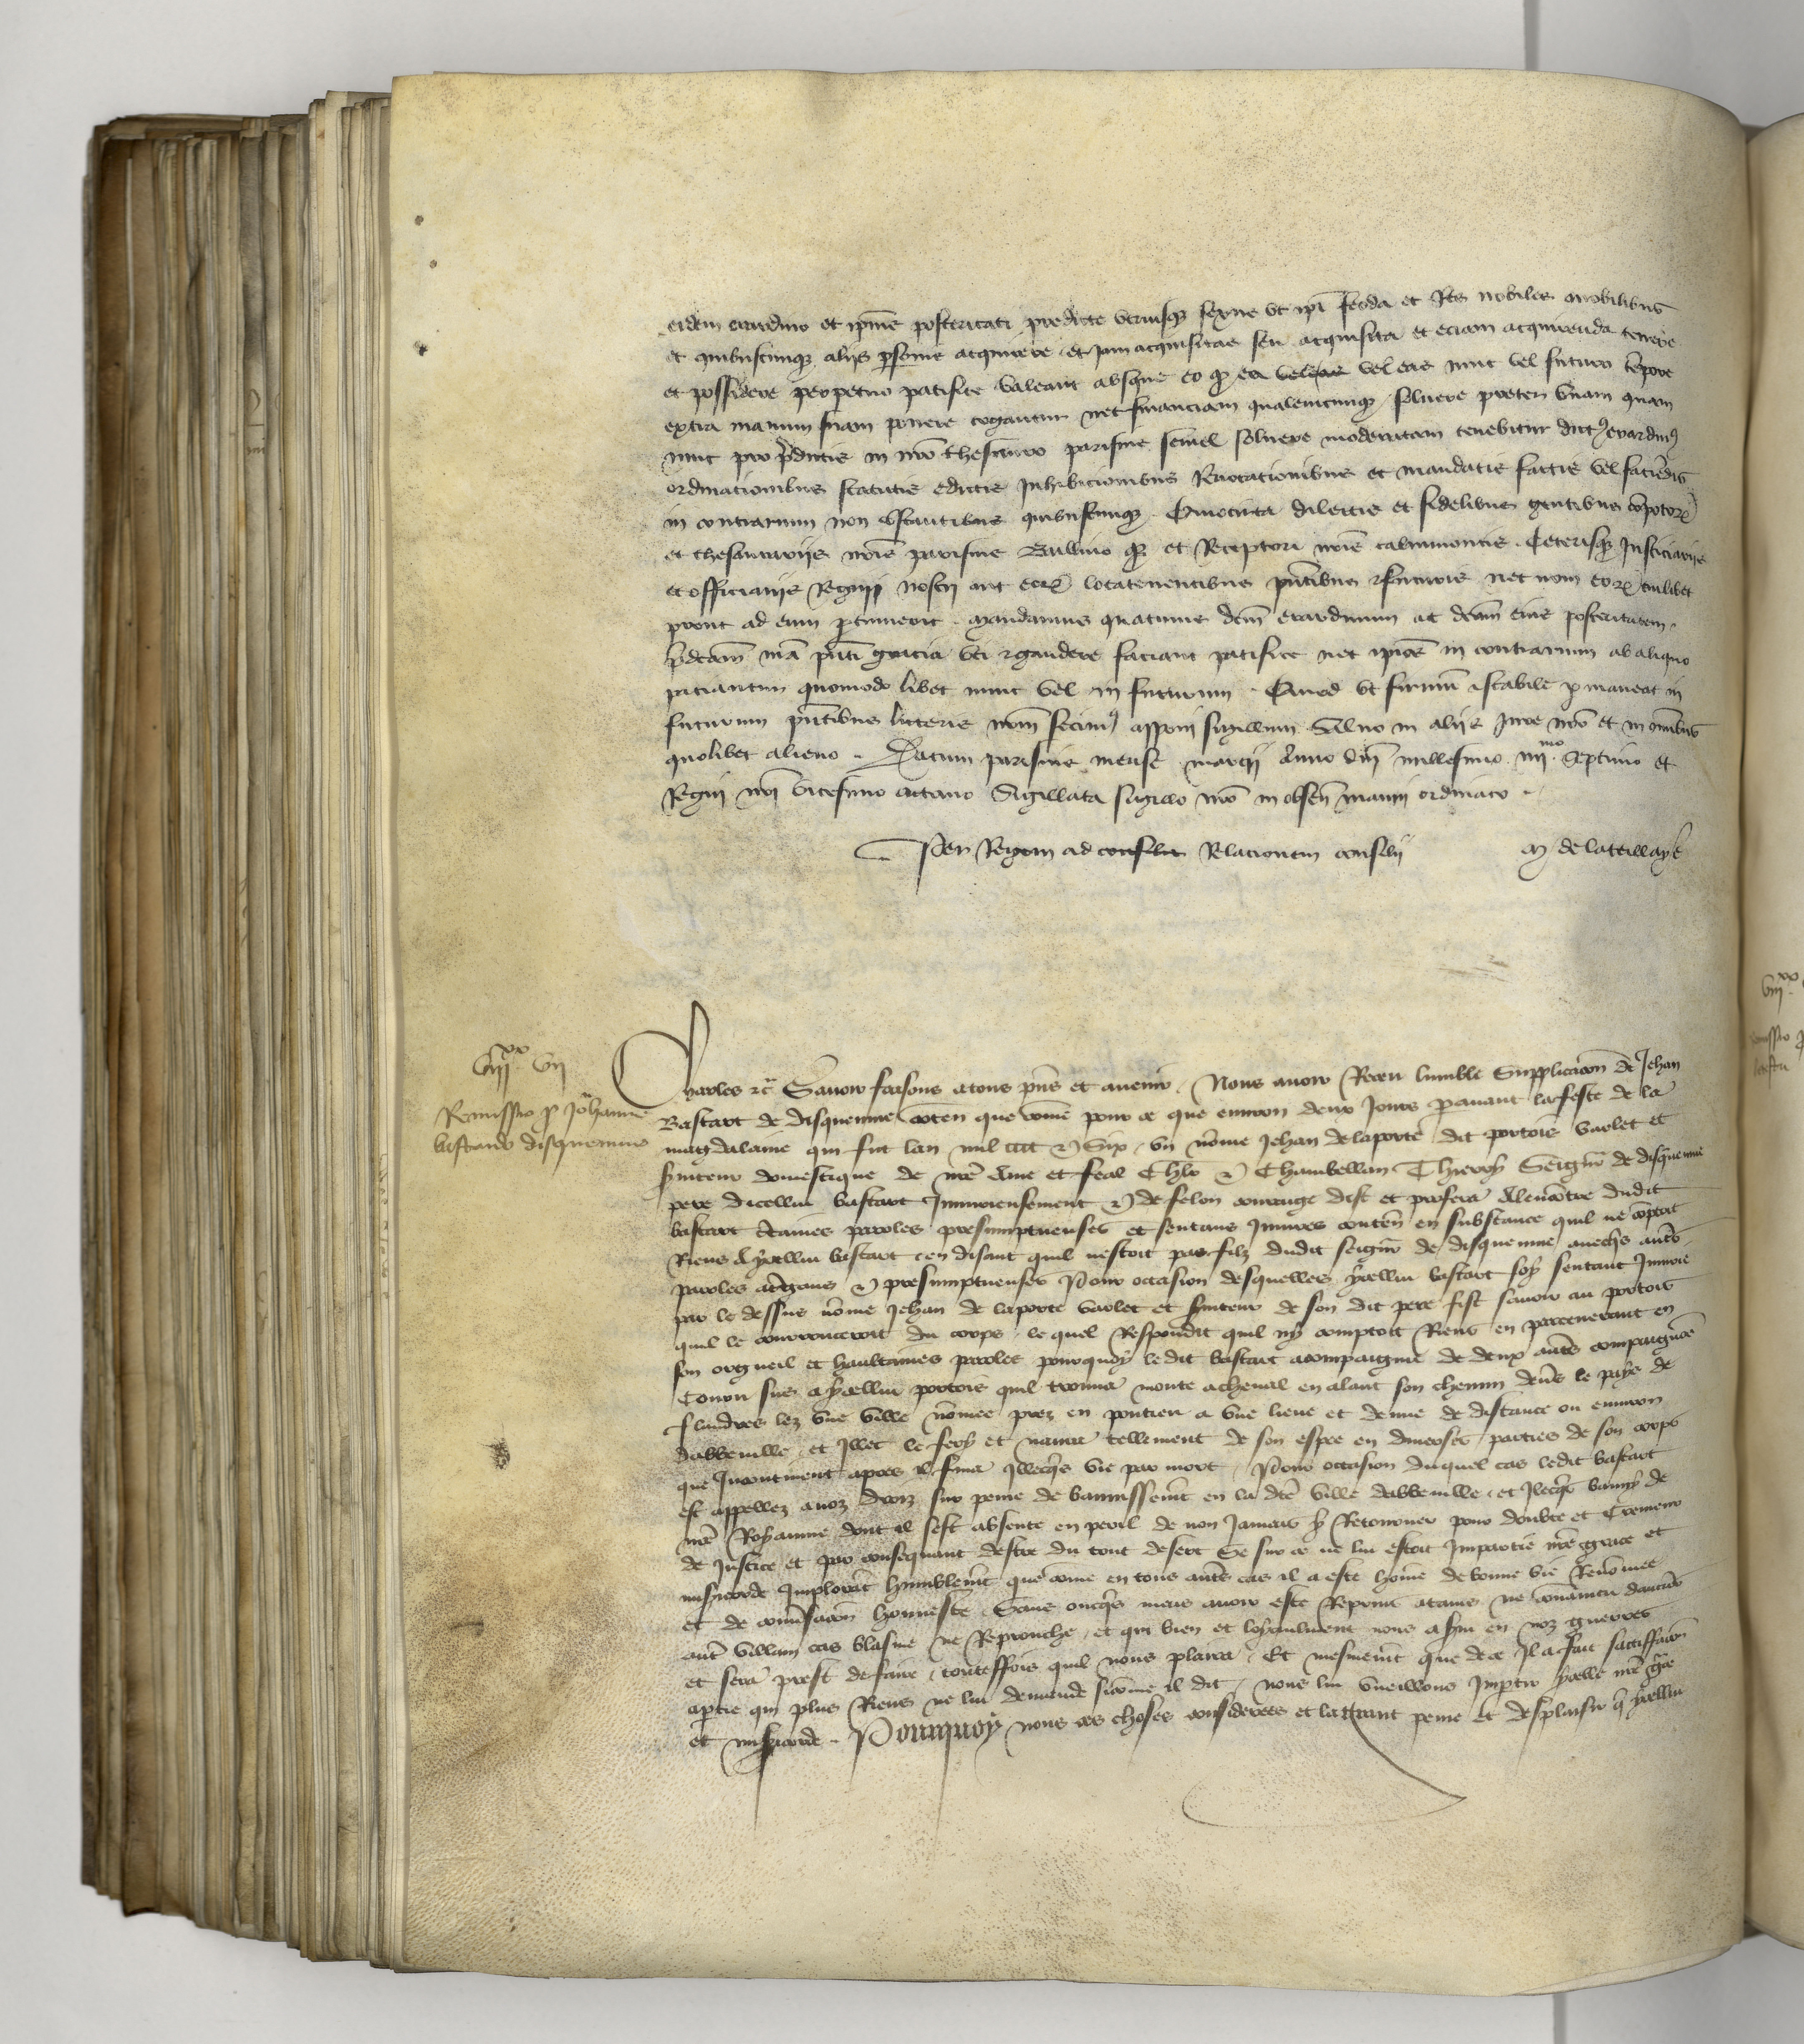 eidem evrardino et ipius posteritati predicte utriusque sexus ut ipi feoda et Res nobiles a nobilibus
et quibuscunque aliis personis acquirere et jam acquisitas seu acquisita et eciam acquirenda tenere
et possidere perpetuo pacifice valeant absque eo quod ea vel eas vel eas nunc vel futuro tempore
extra manum suam ponere cogantur nec financiam qualemcunque solvere preter unam quam
nunc pro predictis in nro thesauro parisius semel solvere moderatam tenebitur dictus evrardinus
ordinacionibus statutis edictis Inhibicionibus Revocationibus et mandatis factis vel faciendis
in contrarium non obstantibus quibuscunque. Quocirca dilectis et fidelibus gentibus compotorum
et thesaurariis nris parisius Baillivo que et Receptori nris calvimontis. Ceterisque Justiciariis
et officiariis Regni nostri aut eorum locatenentibus pntibus et futuris nec non eorum cuilibet
prout ad eum pertinuerit. Mandamus quatinus dcm evrardinum ac dcam eius posteritatem
predcam nra pnti gracia uti et gaudere faciant pacifice nec ipsos in contrarium ab aliquo
paciantur quomodolibet nunc vel in futurum. Quod ut firmum et stabile permaneat in
futurum pntibus litteris nrm fecimus apponi sigillum. Salvo in aliis jure nro et in omnibus
quolibet alieno. Datum parisius mense marcii Anno dni millesimo iiii mo Septimo et
Regni nri vicesimo octavo Sigillata sigillo nro in absen magni ordinato.
Per Regem ad consiliu Relationem consilii M de lateillaye
viii xx vii
Remissio p Johanne
bastardo disquemue
Charles etc Savoir faisons atous pns et avenir. Nous avoir Receu lumble Supplicacion de Jehan
Bastart de disquemue conten que come pour ce que environ deux Jours pavant la feste de la
magdalaine qui fut lan mil cccc et Six, un nome Jehan de laporte dit portois varlet et
serviteur domestique de nre Ame et feal Chlr et Chambellan Thierry Seigneur de disquemue
pere dicellui bastart Injurieusement et de felon courage dist et profera A lencontre dudit
bastart ctaines paroles presumptueuses et sentans Injures conten en substance quil ne comptoit
Riens A ycellui bastart en disant quil nestoit pas filz dudit seigneur de disquemue avecques autres
paroles arrogans et presumptueuses Pour occasion desquelles ycellui bastart soy sentant Injurie
par le dessus nome Jehan de laporte varlet et serviteur de son dit pere fist savoir au portois
quil le courrouceroit du corps, le quel Respondit quil ny comptoit Riens en perseverant en
son orgueil et haultaines paroles pourquoy ledit bastart acompaigne de deux autres compaignons
Couru sus a ycellui portois quil trouva monte acheval en alant son chemin devers le pays de
flandres lez une ville nomee prez en pontieu a une lieue et demie de distance ou environ
dabbeville, et Illec le fery et navra tellement de son espee en diverses parties de son corps
que Incontinent apres il fina Illecques vie par mort. Pour occasion duquel cas ledit bastart
est appellez a noz droiz sur peine de bannissement en la dte ville dabbeville, et Ilecques banny de
nre Royaume dont il sest absente en peril de non Jamais y Retourner pour doubte et Cremeur
de Justice et par consequant destre du tout desert Se sur ce ne lui estoit Impartie nre grace et
misericorde Implorant humblement que come en tous autres cas il a este home de bonne vie Renomee
et de conversacion honneste Sans oncques mais avoir este Reprins ataint ne convaincu daucun
autre villain cas blasme ne Reprouche, et qui bien et loyaulment nous a servi en noz guerres
et sera prest de faire, touteffois quil nous plaira. Et mesmement que de ce Il a fait satisffacion
a partie qui plus Riens ne lui demande sicome il dit, nous lui vueillons Impartir ycelle nre grace
et misericorde. Pourquoy nous ces choses considerees et lattrant peine et desplaisir que ycellui